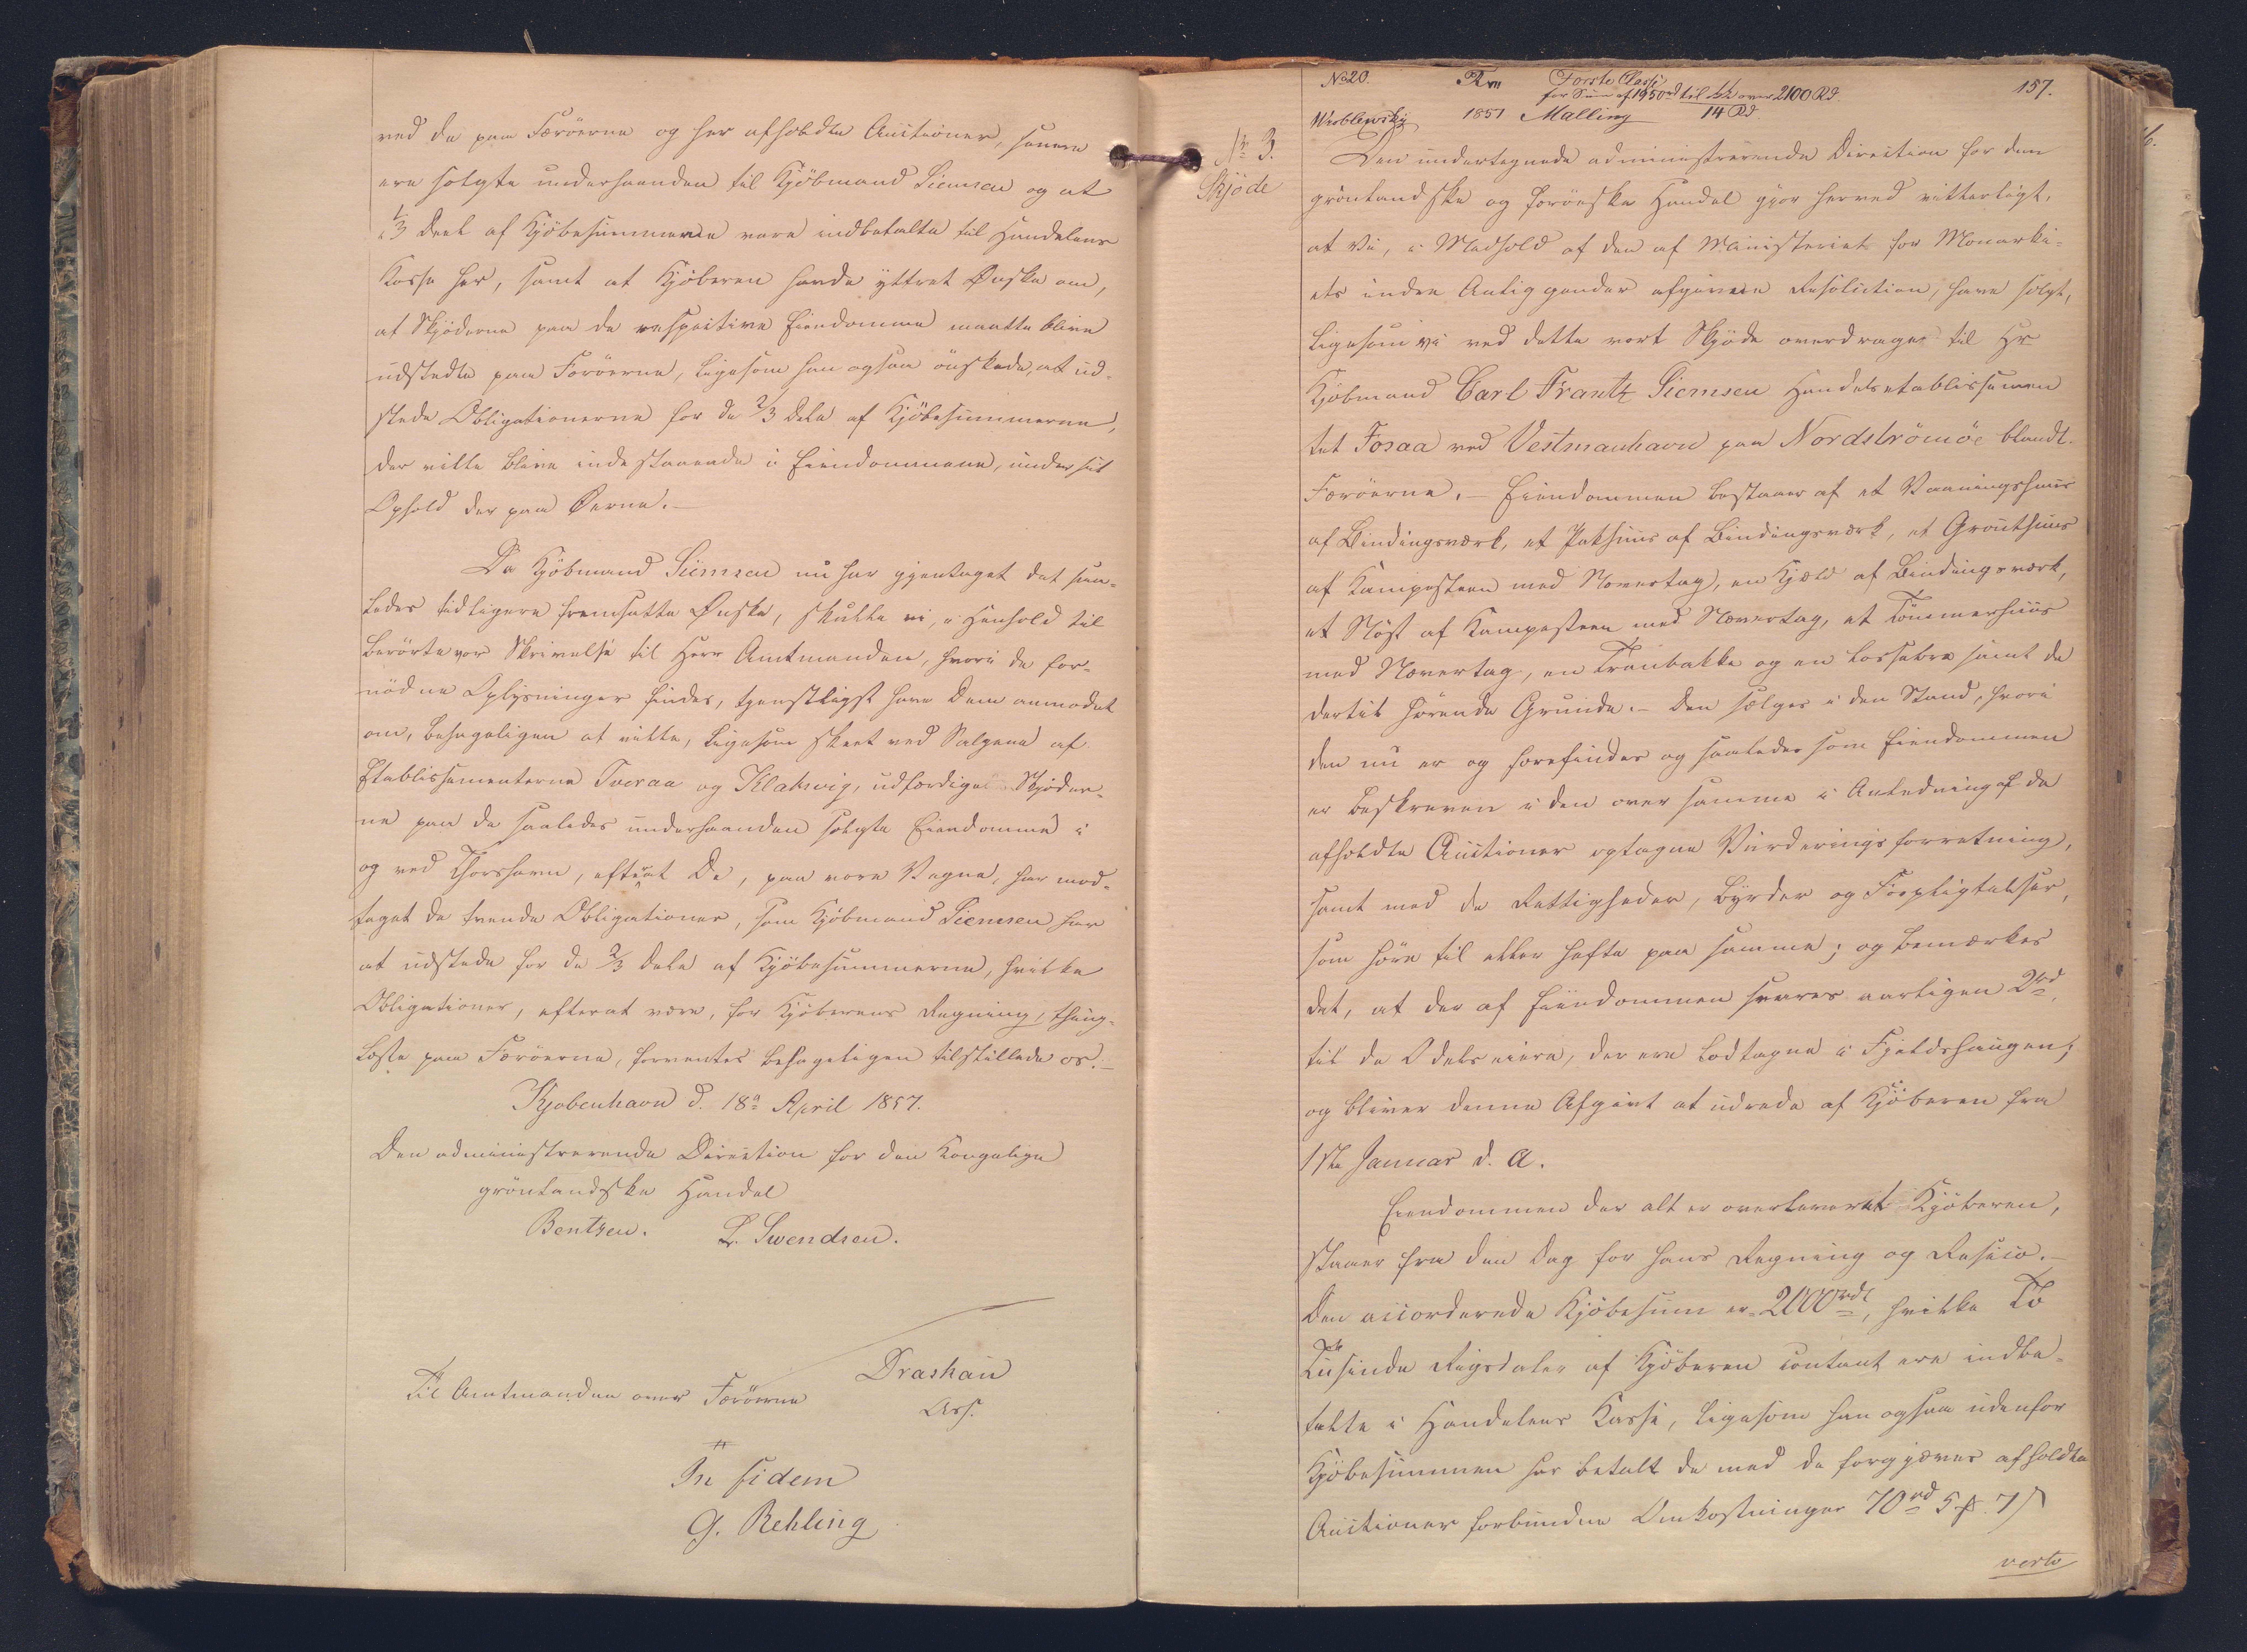 ved de paa Færöerne og her afholdte Auctioner, senere
ere solgte underhaanden til Kjöbmand Siemsen og at
1/3 Deel af Kjöbesummerne vare indbetalte til Handelens
Kasse her, samt at Kjöberen havde yttret Ønske om,
at Skjöderne paa de respective Eiendomme maatte blive
udstedte paa Færöerne, ligesom han ogsaa önskede, at ud-
stede Obligationerne for de 2/3 Dele af Kjöbesummerne,
der ville blive indestaaende i Eiendommene, under sit
Ophold der paa Øerne.—
Da Kjöbmand Siemsen nu har gjentaget det saa-
ledes tidligere fremsatte Ønske, skulle vi, i Henhold til
berörte vor Skrivelse til Herr Amtmanden, hvori de for-
nödne Oplysninger findes, tjenstligst have Dem anmodet
om, behageligen at ville, ligesom skeet ved Salgene af
Etablissementerne Tveraa og Klaksvig, udfærdige Skjöder-
ne paa de saaledes underhaanden solgte Eiendomme i
og ved Thorshavn, efterat De, paa vore Vegne, har mod-
taget de tvende Obligationer, som Kjöbmand Siemsen har
at udstede for de 2/3 Dele af Kjöbesummerne, hvilke
Obligationer, efterat være, for Kjöberens Regning, thing-
læste paa Færöerne, forventes behageligen tilstillede os.—
Kjobenhavn d. 18de April 1857.
Den administrerende Direction for den Kongelige
grönlandske Handel
Bentzen. L. Svendsen.
Drashau
Ass.
Til Amtmanden over Færöerne
In fidem
G. Rehling
No 20. Förste Classe 157.
for Sum af 1950rd til over 2100 Rd.
Wroblewsky 1857 Malling 14 Rd
Nr 3.
Skjöde
Den undertegnede administrerende Direction for den
grönlandske og færöeske Handel gjör herved vitterligt,
at Vi, i Medhold af den af Ministeriet for Monarki-
ets indre Anliggender afgivne Resolution, have solgt,
ligesom vi ved dette vort Skjöde overdrager til Hr
Kjöbmand Carl Frantz Siemsen Handelsetablissemen
tet Fosaa ved Vestmanhavn paa Nordströmöe blandt
Færöerne.— Eiendommen bestaaer af et Vaaningshuus
af Bindingsværk, et Pakhuus af Bindingsværk, et Grouthuus
af Kampesteen med Nævertag, en Kjæld af Bindingsværk,
et Nöst af Kampesteen med Nævertag, et Tömmerhuus
med Nævertag, en Tranbakke og en Lossebro samt de
dertil hörende Grunde.— Den sælges i den Stand, hvori
den nu er og forefindes og saaledes som Eiendommen
er beskreven i den over samme i Anledning af de
afholdte Auctioner optagne Vurderingsforretning,
samt med de Rettigheder, Byrder og Forpligtelser,
som höre til eller hefte paa samme; og bemærkes
det, at der af Eiendommen svares aarligen 2rd,
til de Odelseiere, der ere lodtagne i Fjeldshaugen;
og bliver denne Afgivt at udrede af Kjöberen fra
1ste Januar d. A.
Eiendommen der alt er overleveret Kjöberen,
staaer fra den Dag for hans Regning og Resico.—
Den accorderede Kjöbesum er 2000rdl, hvilke To
Tusinde Rigsdaler af Kjöberen contant ere indbe-
talte i Handelens Kasse, ligesom han ogsaa udenfor
Kjöbesummen har betalt de med de forgjæves afholdte
Auctioner forbundne Omkostninger 70rd 5 7
verte